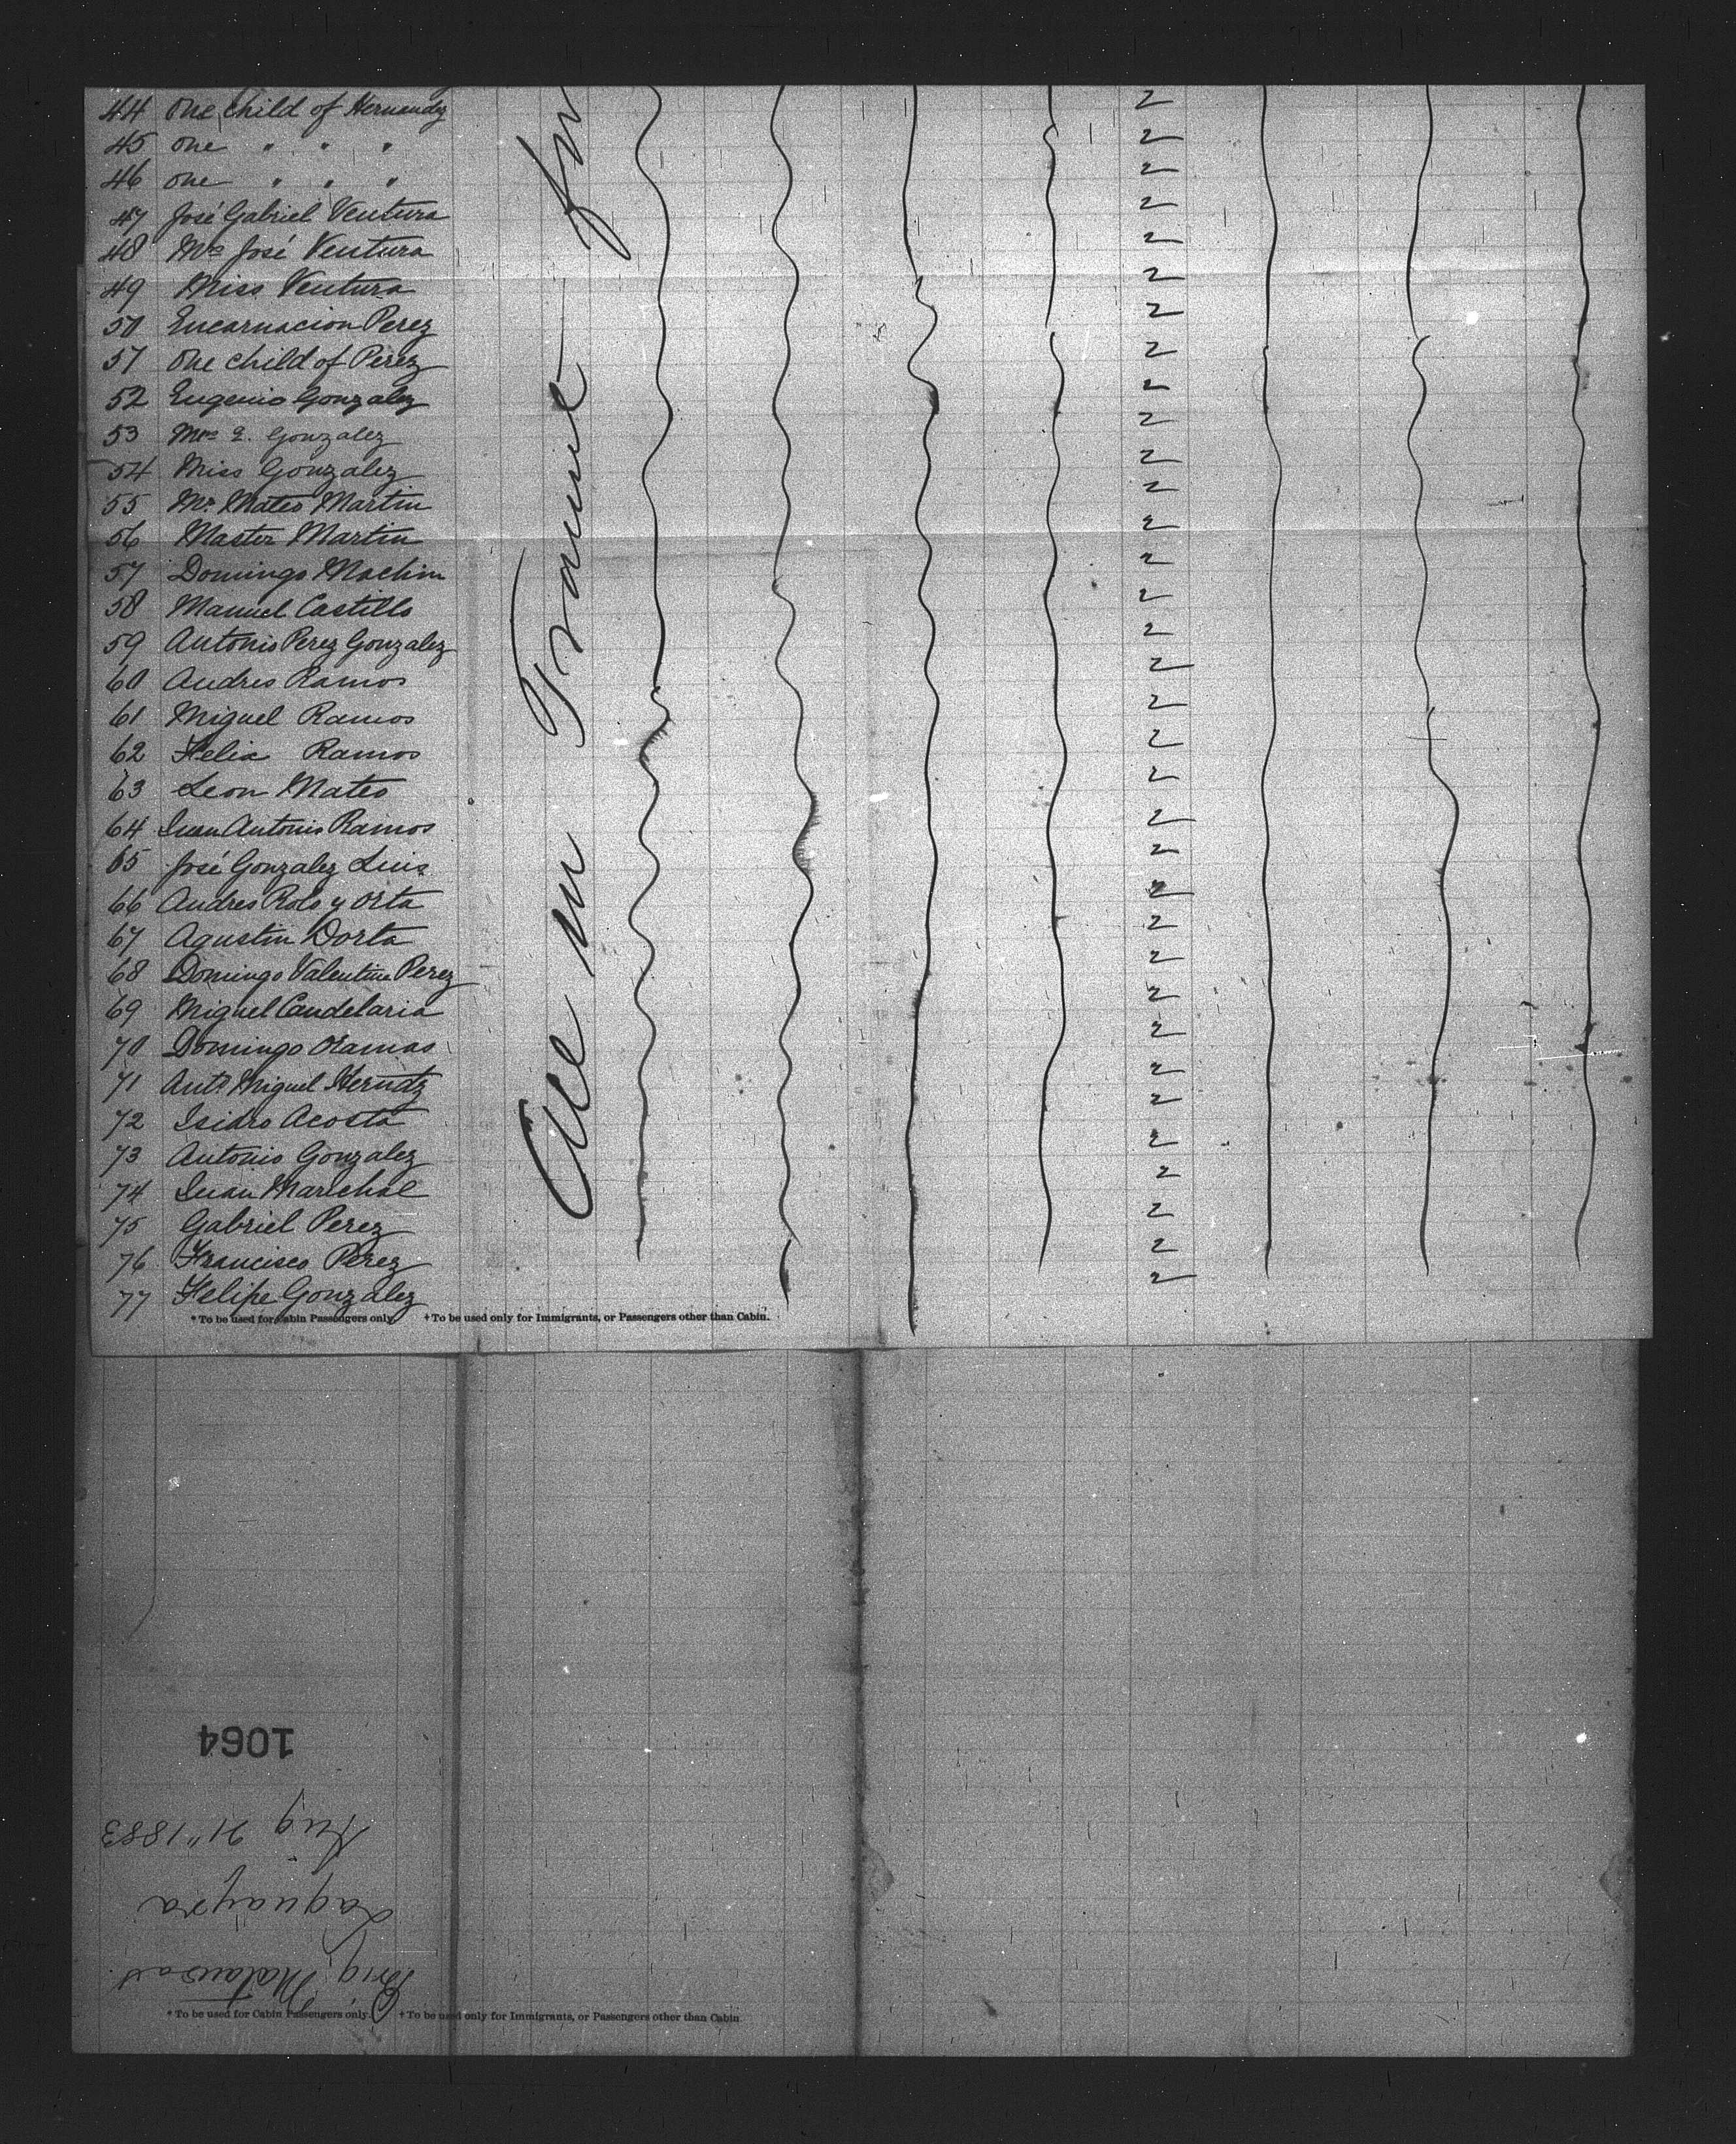 44 One Child of Hernandez 2
45 One " " " 2
46 One " " " 2
47 José Gabriel Ventura 2
48 Mrs José Ventura 2
49 Miss Ventura 2
50 Encarnacion Perez 2
51 One child of Perez 2
52 Eugenio Gonzalez 2
53 Mrs E. Gonzalez 2
54 Miss Gonzalez 2
55 Mr Mateo Martin 2
56 Master Martin 2
57 Domingo Machin 2
58 Manuel Castillo 2
59 Antonio Perez Gonzalez 2
60 Andres Ramos 2
61 Miguel Ramos 2
62 Felix Ramos 2
63 Leon Mateo 2
64 Juan Antonio Ramos 2
65 José Gonzalez Luis 2
66 Andres Rolo y Orta 2
67 Agustin Dorta 2
68 Domingo Valentine Perez 2
69 Miguel Candelaria 2
70 Domingo Ramas 2
71 Anto Miguel Herndz 2
72 Isidro Acosta 2
73 Antonio Gonzalez 2
74 Juan Marichal 2
75 Gabriel Perez 2
76 Francisco Perez 2
77 Felipe Gonzalez 2
All in Transit
* To be used for Cabin Passengers only. † To be used only for Immigrants, or Passengers other than Cabin.
Brig Matanzas
Laguayra
Aug 21" 1883
1064
* To be used for Cabin Passengers only. † To be used only for Immigrants, or Passengers other than Cabin.